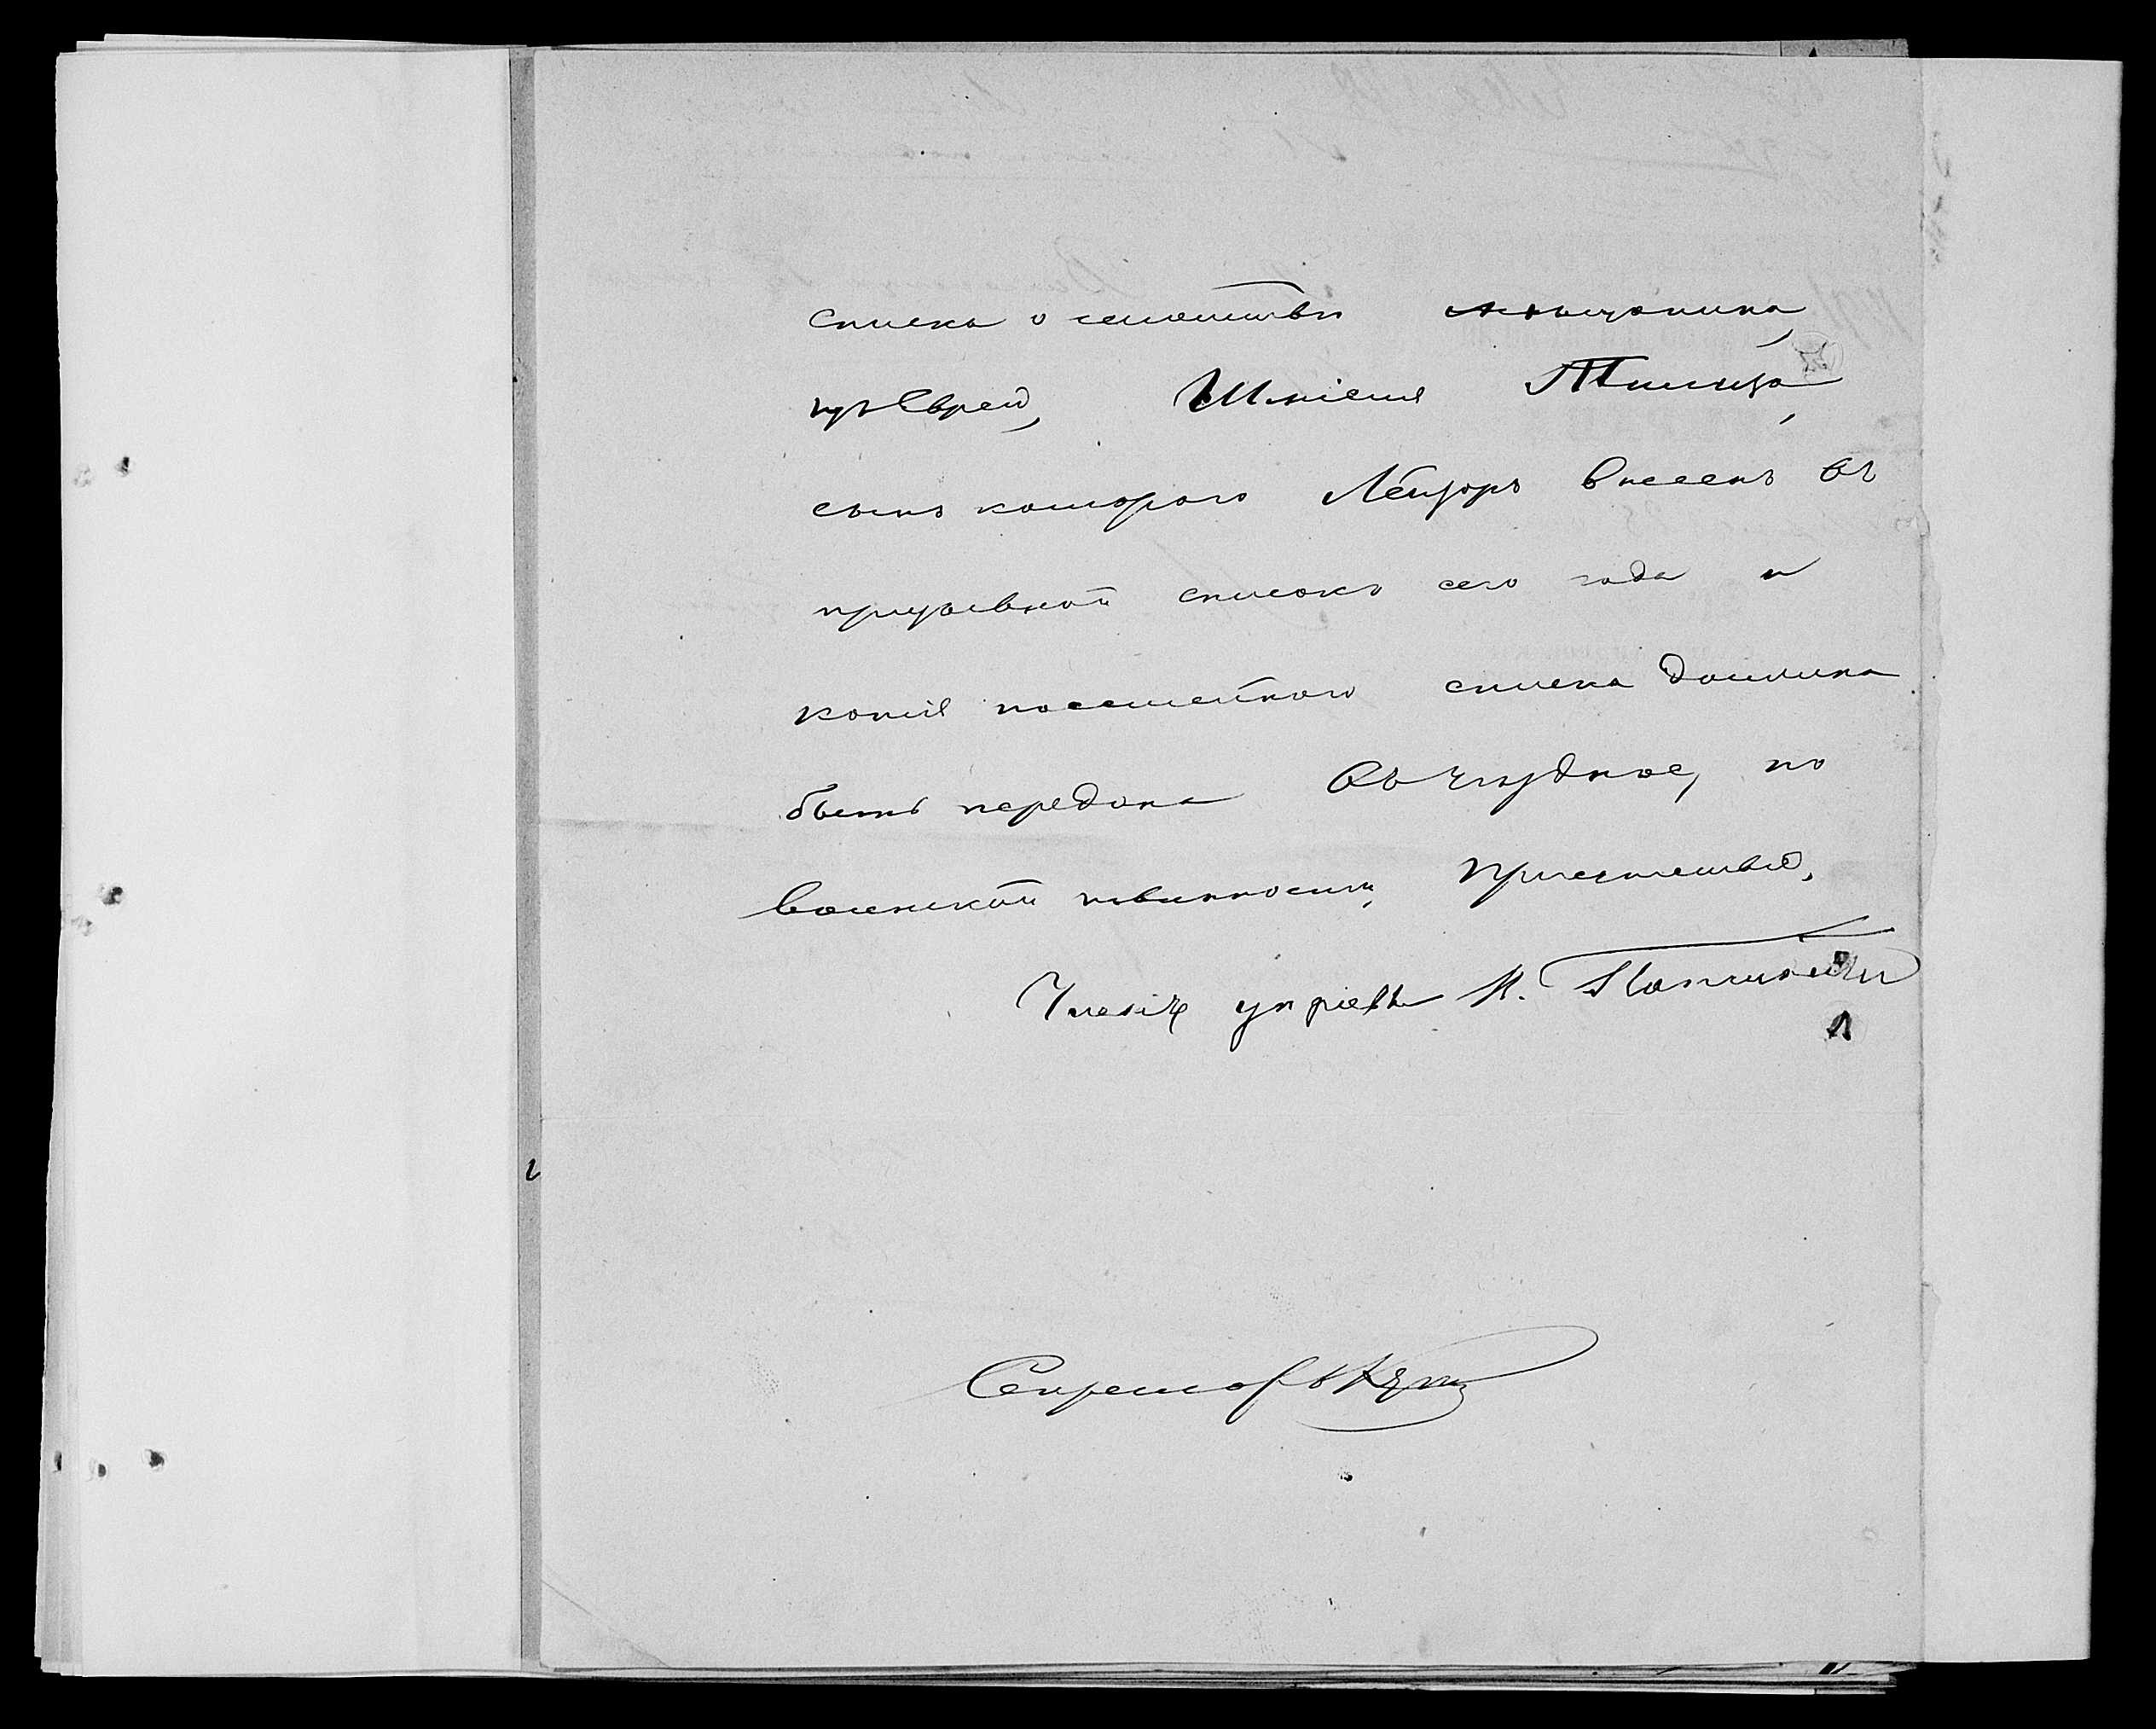 списка о семействѣ мѣщанина,
изъ Евреи, Шміеля
сынъ котораго Лейзоръ внесенъ въ
призывной списокъ сего года и
копія посемейнаго списка должна
быть передана въ уѣздное, по
воинской повинности, присутствіе.
Членъ управы
Секретарь